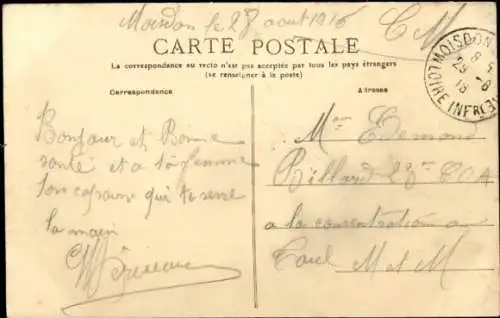 Moisdon le 28 août 1916
C M
CARTE POSTALE
La correspondance au recto n'est pas acceptée par tous les pays étrangers
(se renseigner à la poste)
Correspondance
Adresse
MOISDON
LOIRE INFRE
Bonjour et Bonne
santé et a ta femme
ton copain qui te serre
la main
Mon Edmond
Billard 23me COA
a la concentration a
Toul M et M